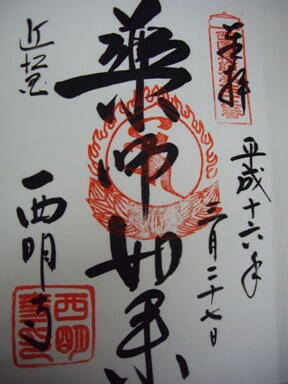 奉拝
平成十六年
三月二十七日
薬師如来
近江
西明寺
西明